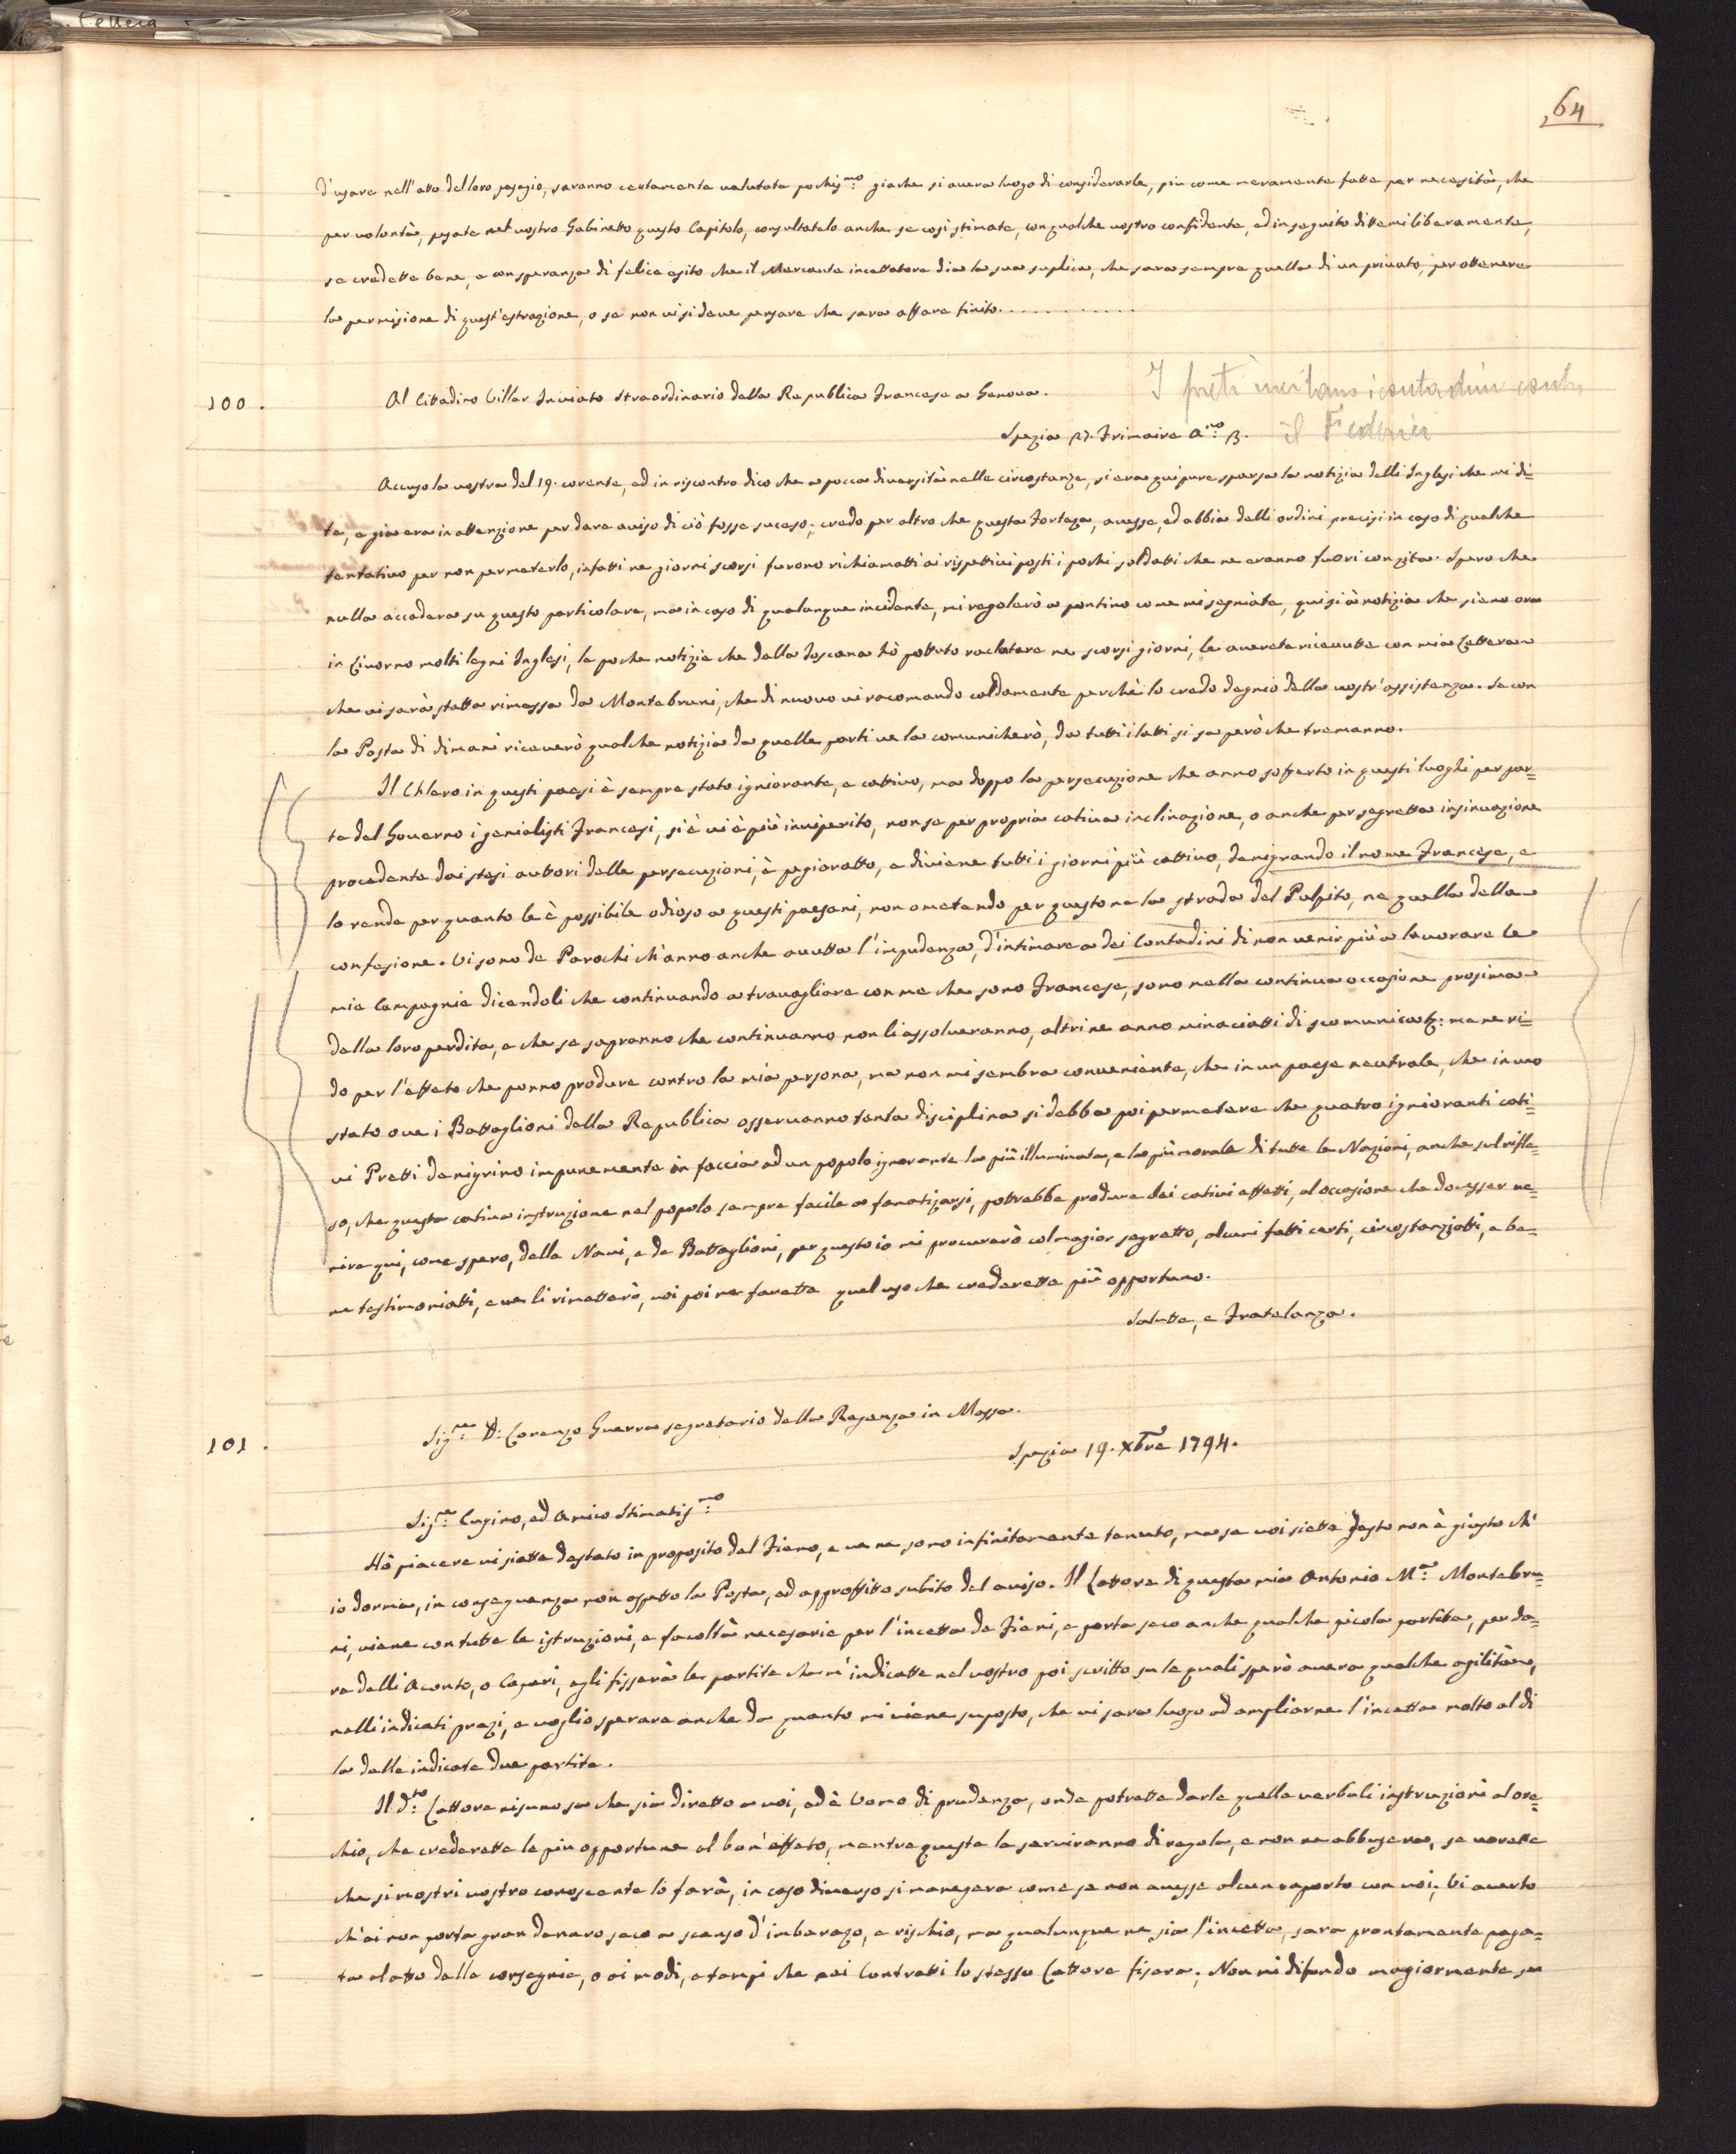 64
d'usare nell'atto del loro pasagio, saranno certamente valutate pochis.mo giache si avera luogo di considerarle, piu come meramente fatte per necesità, che
per volontà, pesate nel vostro Gabinetto questo Capitolo, consultatelo anche se cosi stimate, con qualche vostro confidente, ed in seguito ditemi liberamente,
se credette bene, e con speranza di felice esito che il Mercante incettatore dia la sua suplica, che sara sempre quella di un privato, per ottenere
la permisione di quest'estrazione, o se non vi si deve pensare che sara affare finito. . . . . . . . . . . .
I preti incitano i contadini contro
il Federici
100.
Al Cittadino Villar Inviato Straordinario della Republica Francese a Genova.
Spezia 27. Frimaire A.no 3.
Accuso la vostra del 19. corente, ed in riscontro dico che a pocca diversità nelle circostanze, si era qui pure sparsa la notizia delli Inglesi che mi di=
te, e gia era in attenzione per dare aviso di ciò fosse suceso; credo per altro che questa Forteza, avesse, ed abbia delli ordini precisi in caso di qualche
tentativo per non permeterlo, infatti ne giorni scorsi furono richiamatti ai rispettivi posti i pochi soldatti che ne eranno fuori con gita. Spero che
nulla accadera su questo particolare, ma in caso di qualunque incidente, mi regolerò a pontino come mi segniate, qui si à notizia che sieno ora
in Livorno molti legni Inglesi, le poche notizie che dalla Toscana hò pottuto raclatare ne scorsi giorni, le averete ricevutte con mia Lettera
che vi sarà statta rimessa da Montebruni, che di nuovo vi racomando caldamente perchè lo credo degnio della vostr'assistenza. Se con
la Posta di dimani riceverò qualche notizia da quelle parti ve la comunicherò, da tutti i latti si sa però che tremanno.
Il Chlero in questi paesi è sempre stato igniorante, e cattivo, ma doppo la persecuzione che anno sofferto in questi luoghi per par=
te del Governo i genialisti Francesi, si è vi è più inviperito, non so per propria cativa inclinazione, o anche per segretta insinuazione
procedente dai stesi auttori delle persecuzioni, è pegioratto, e diviene tutti i giorni più cattivo, denigrando il nome Francese, e
lo rende per quanto le è possibile odioso a questi paesani, non ometendo per questo ne la strada del Pulpito, ne quella della
confesione. Vi sono de Parochi ch'anno anche avutta l'impudenza, d'intimare a dei Contadini di non venir più a lavorare le
mie Campagnie dicendoli che continuando a travagliare con me che sono Francese, sono nella continua occasione prosima
della loro perdita, e che se sapranno che continuanno non li assolveranno, altri ne anno minaciatti di scomunica &: me ne ri=
do per l'effeto che ponno produre contro la mia persona, ma non mi sembra conveniente, che in un paese neutrale, che in uno
stato ove i Battaglioni della Republica osservanno tanta disciplina si debba poi permetere che quatro ignioranti cati=
vi Pretti denigrino impunemente in faccia ad un popolo ignorante la più illuminata, e la più morale di tutte le Nazioni, anche sul rifle=
so, che questa cativa instruzione nel popolo sempre facile a fanatizarsi, pottrebbe produre dei cativi effetti, al occasione che dovesser ve=
nire qui, come spero, delle Navi, e de Battaglioni, per questo io mi procurerò col magior segretto, alcuni fatti certi, circostanziatti, e be=
ne testimoniatti, e ve li rimetterò, voi poi ne farette quel uso che crederette più opportuno.
Salutte, e Fratelanza.
101.
Sig.re D: Lorenzo Guerra segretario della Regenza in Massa.
Spezia 19. Xbre 1794.
Sig.re Cugino, ed Amico Stimatis.mo
Hò piacere vi siatte destato in proposito del Fieno, e ve ne sono infinitamente tenuto, ma se voi siette desto non è giusto ch'
io dorma, in conseguenza non aspetto la Posta, ed approffitto subito del aviso. Il Lattore di questa mia Antonio M.a Montebru=
ni, viene con tutte le istruzioni, e facoltà necesarie per l'incetta de Fieni, e porta seco anche qualche picola partita, per da=
re delli Aconto, o Capari, egli fisserà le partite che m'indicatte nel vostro poi scritto su le quali sperò avera qualche agilitàne,
nelli indicati prezi, e voglio sperare anche da quanto mi viene suposto, che vi sara luogo ad ampliarne l'incetta molto al di
la delle indicate due partite.
Il d.to Lattore nisuno sa che sia diretto a voi, ed è Uomo di prudenza, onde potrette darle quelle verbali instruzioni al ore=
chio, che crederette le più opportune al bon'effeto, mentre queste le serviranno di regola, e non ne abbusera, se vorette
che si mostri vostro conoscente lo farà, in caso diverso si manegera come se non avesse alcun raporto con voi; Vi averto
ch'ei non porta gran denaro seco a scanso d'imbarazo, e rischio, ma qualunque ne sia l'incetta, sara prontamente paga=
ta al atto della consegnia, o ai modi, e tempi che nei Contratti lo stesso Lattore fisera. Non mi difondo magiormente su